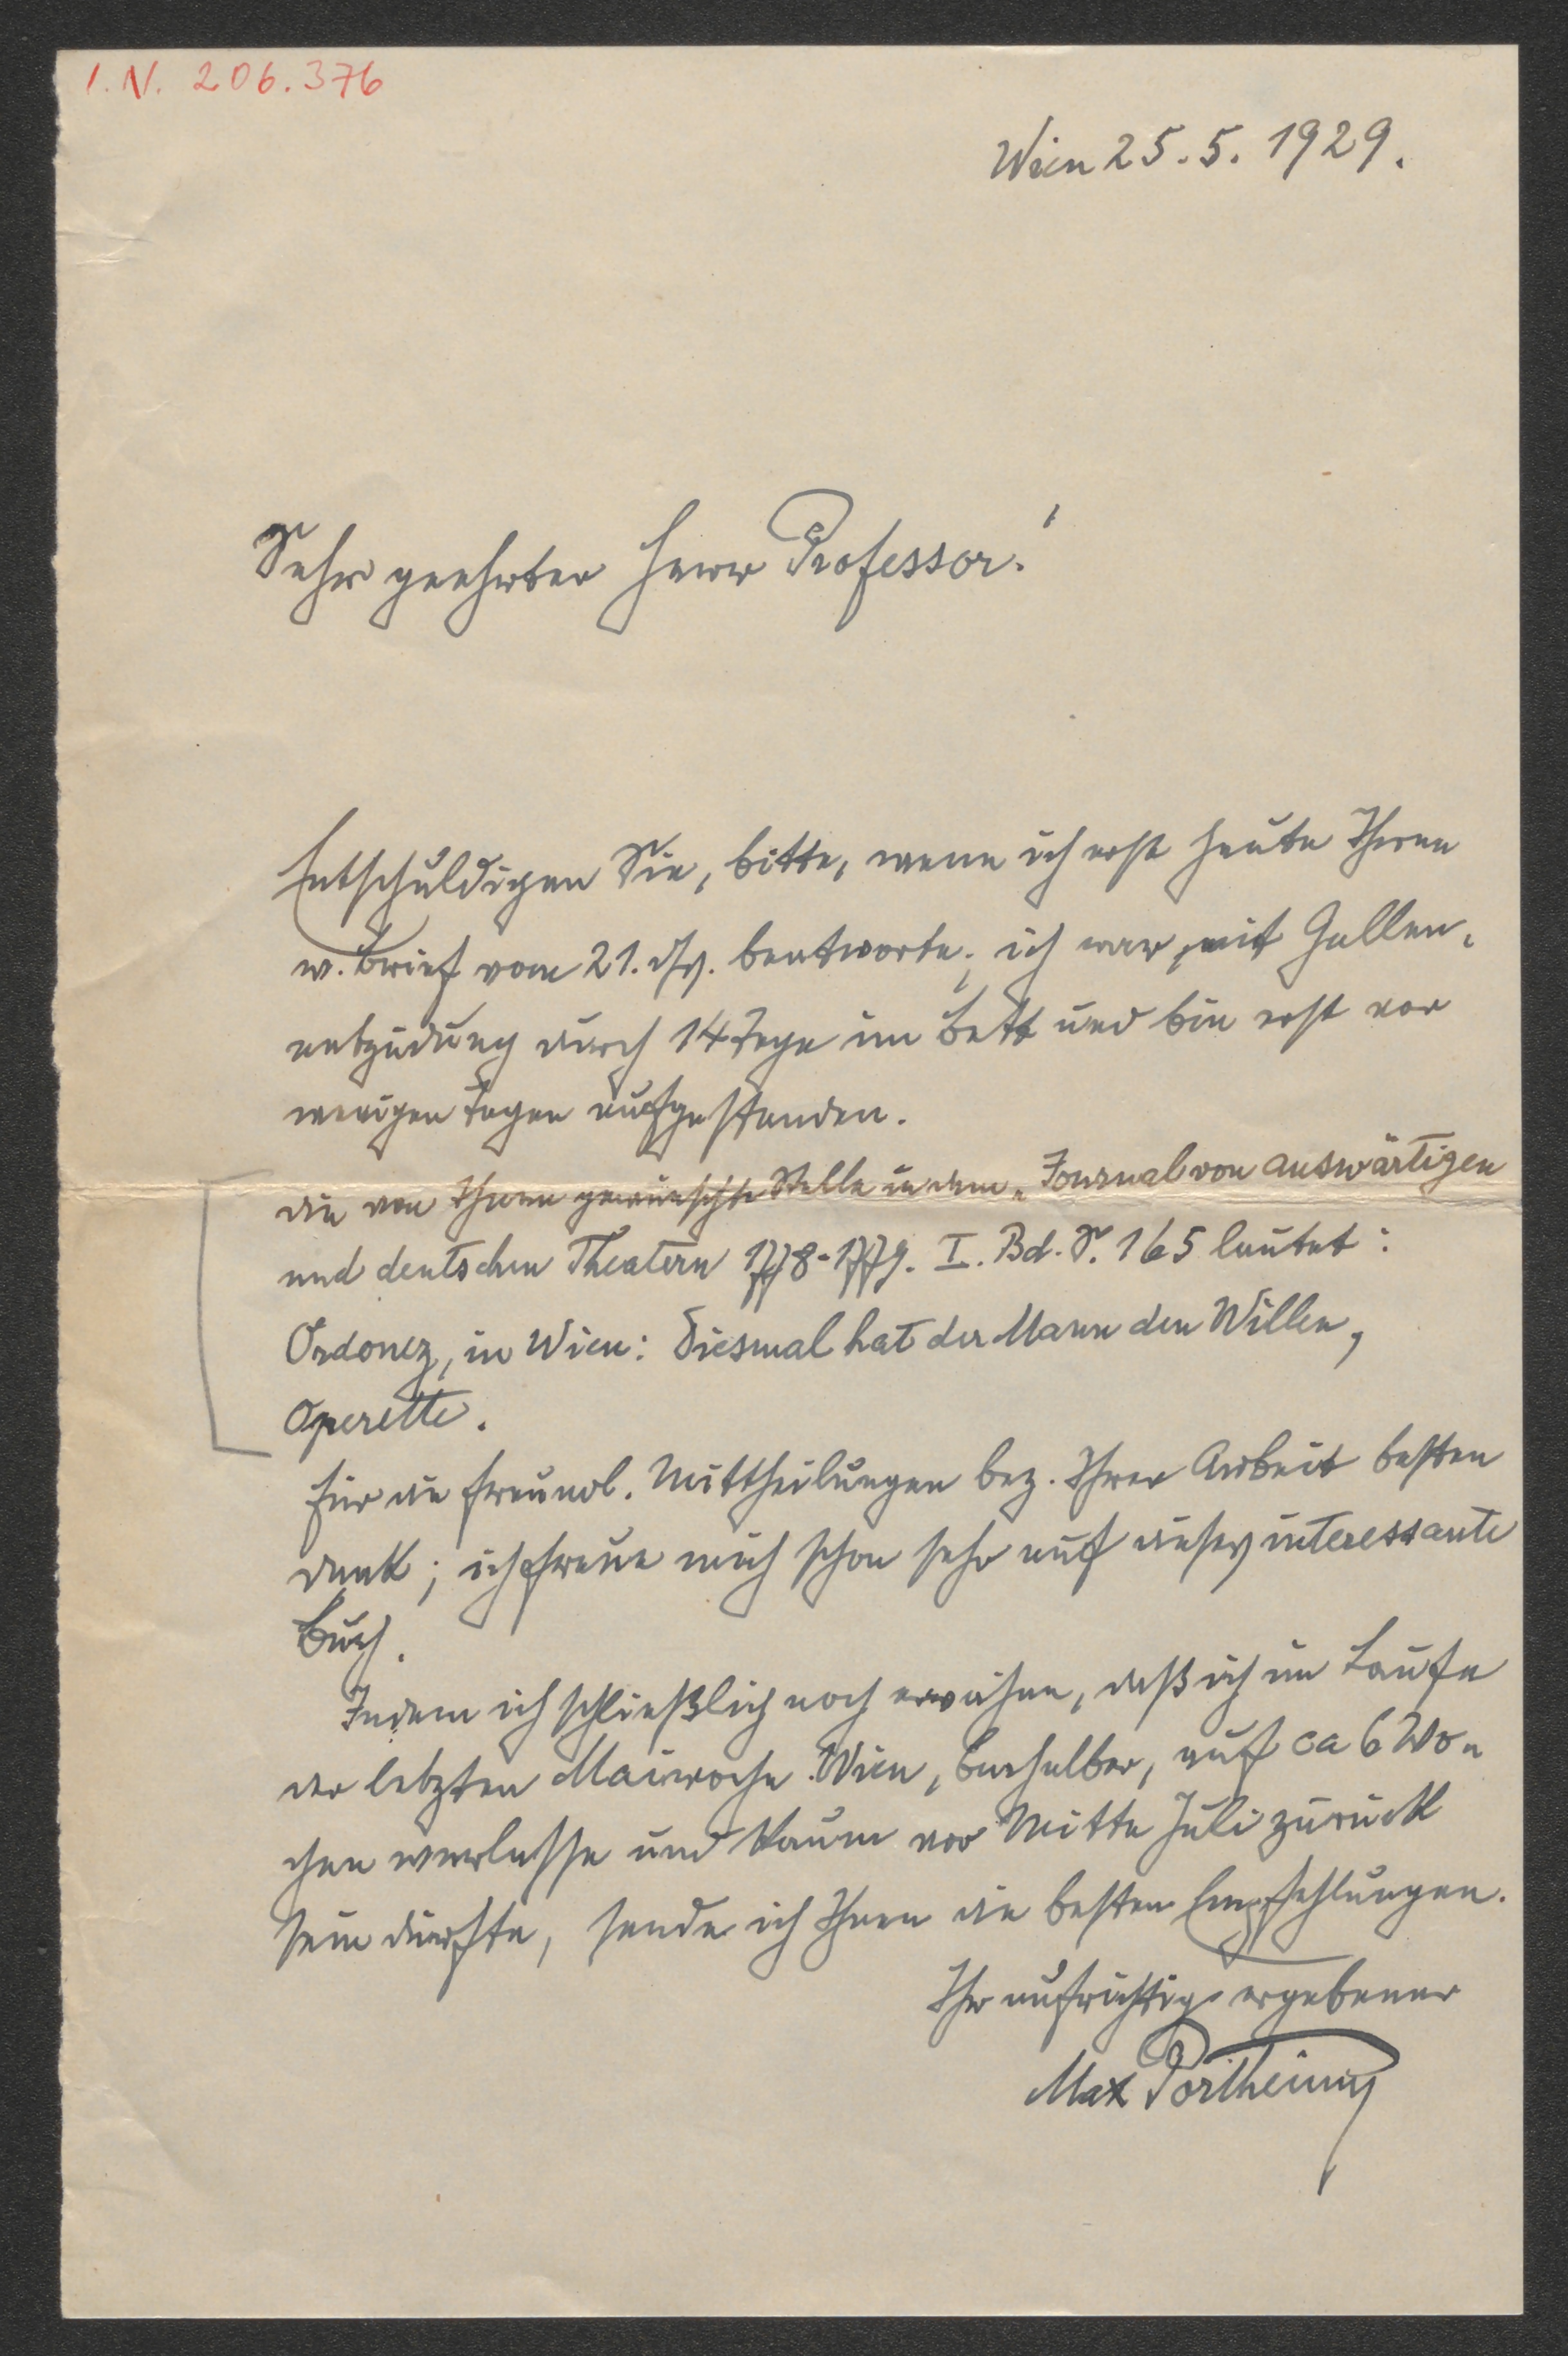 I.N. 206.376
Wien 25.5.1929.
Sehr geehrter Herr Professor!
Entschuldigen Sie, bitte, wenn ich erst heute Ihren
w. Brief vom 21. ds. beantworte; ich war mit Gallen-
entzüdung durch 14 Tage im Bett und bin erst vor
wenigen Tagen aufgestanden.
Die von Ihnen gewünschte Stelle in dem „Journal von auswärtigen
und deutschen Theatern 1778-1779. I. Bd. S. 165 lautet:
Ordonez, in Wien: Diesmal hat der Mann den Willen,
Operette.
Für die freundl. Mittheilungen bez. Ihrer Arbeit besten
Dank; ich freue mich schon sehr auf dieses interessante
Buch.
Indem ich schließlich noch erwähne, daß ich im Laufe
der letzten Maiwoche Wien, auf ca 6 Wo-
chen verlasse und kaum vor Mitte Juli zurück
sein dürfte, sende ich Ihnen die besten Empfehlungen.
Ihr aufrichtig ergebener
Max Portheim